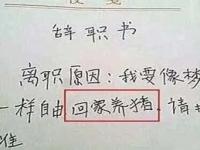 辞职书
离职原因：我要像梦
一样自由 回家养猪，请
准